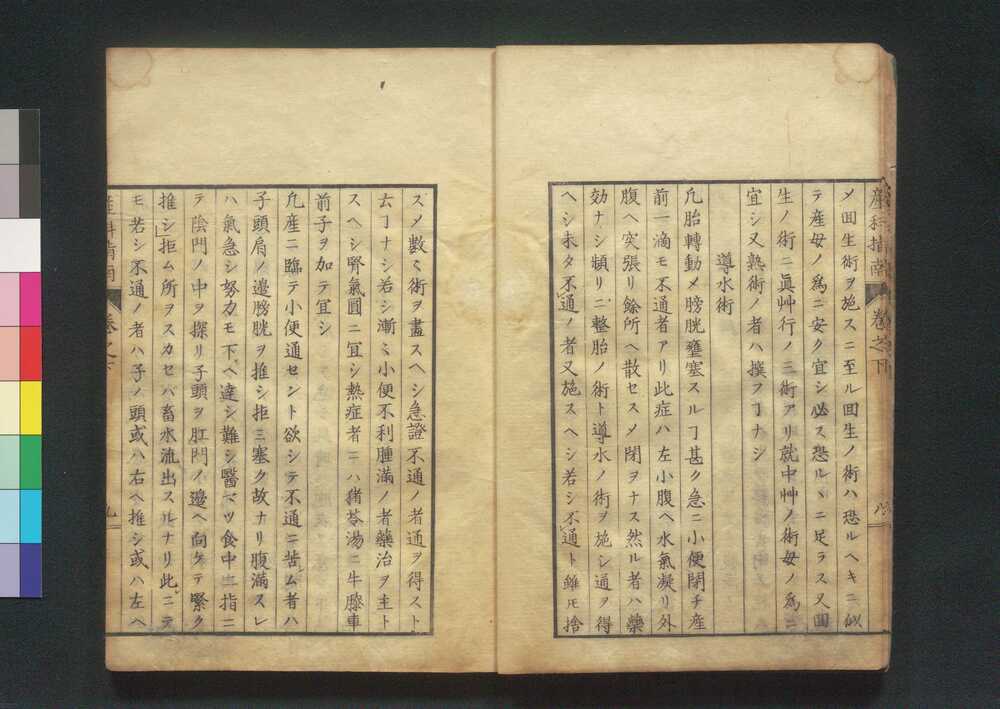 産科指南 巻之下 八
メ回生術ヲ施スニ至ル回生ノ術ハ恐ルヘキニ似
テ産母ノ為ニ安ク宜シ必ス恐ルヽニ足ラス又回
生ノ術ニ眞艸行ノ三術アリ就中艸ノ術母ノ為ニ
宜シ又熟術ノ者ハ撰フヿナシ
導水術
凢胎轉動メ膀胱壅塞スルヿ甚ク急ニ小便閉チ産
前一滴モ不通者アリ此症ハ左小腹ヘ水氣凝リ外
腹ヘ突張リ餘所ヘ散セスメ閉ヲナス然ル者ハ藥
効ナシ頻リニ整胎ノ術ト導水ノ術ヲ施シ通ヲ得
ヘシ未タ不通ノ者又施スヘシ若シ不通ト雖モ捨
スメ數〻術ヲ盡スヘシ急證不通ノ者通ヲ得スト
云フヿナシ若シ漸〻小便不利腫滿ノ者藥治ヲ主ト
スヘシ腎氣圓ニ冝シ熱症者ニハ猪苓湯ニ牛膝車
前子ヲ加テ宜シ
凢産ニ臨テ小便通セント欲シテ不通ニ苦ム者ハ
子頭肩ノ邊膀胱ヲ推シ拒ミ塞ク故ナリ腹滿スレ
ハ氣急シ努力モ下ヘ達シ難シ醫マツ食中ニ指ニ
テ陰門ノ中ヲ探リ子頭ヲ肛門ノ邊ヘ向ケテ緊ク
推シ拒ム所ヲスカセバ畜水流出スルナリ此ニテ
モ若シ不通ノ者ハ子ノ頭或ハ右ヘ推シ或ハ左ヘ
産科指南 巻之下 九